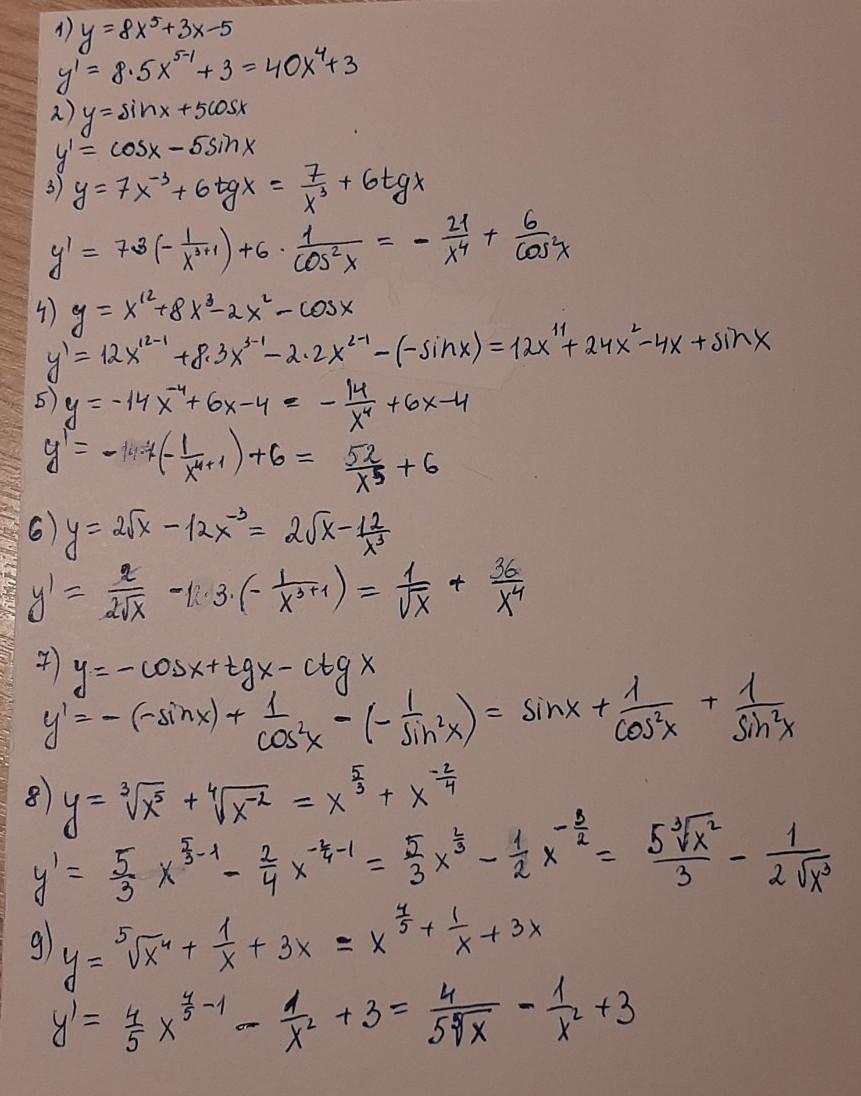 1) y = 8x⁵ + 3x - 5
y' = 8·5x⁵⁻¹ + 3 = 40x⁴ + 3
2) y = sinx + 5cosx
y' = cosx - 5sinx
3) y = 7x⁻³ + 6tgx = 7/x³ + 6tgx
y' = 7·3(-1/x³⁺¹) + 6·1/cos²x = -21/x⁴ + 6/cos²x
4) y = x¹² + 8x³ - 2x² - cosx
y' = 12x¹²⁻¹ + 8·3x³⁻¹ - 2·2x²⁻¹ - (-sinx) = 12x¹¹ + 24x² - 4x + sinx
5) y = -14x⁻⁴ + 6x - 4 = -14/x⁴ + 6x - 4
y' = -14·4(-1/x⁴⁺¹) + 6 = 52/x⁵ + 6
6) y = 2√x - 12x⁻³ = 2√x - 12/x³
y' = 2/2√x - 12·3·(-1/x³⁺¹) = 1/√x + 36/x⁴
7) y = -cosx + tgx - ctgx
y' = -(-sinx) + 1/cos²x - (-1/sin²x) = sinx + 1/cos²x + 1/sin²x
8) y = ³√x⁵ + ⁴√x⁻² = x^5/3 + x^-2/4
y' = 5/3 x^5/3-1 - 2/4 x^-2/4-1 = 5/3 x^2/3 - 1/2 x^-3/2 = 5³√x²/3 - 1/2√x³
9) y = ⁵√x⁴ + 1/x + 3x = x^4/5 + 1/x + 3x
y' = 4/5 x^4/5-1 - 1/x² + 3 = 4/5⁵√x - 1/x² + 3